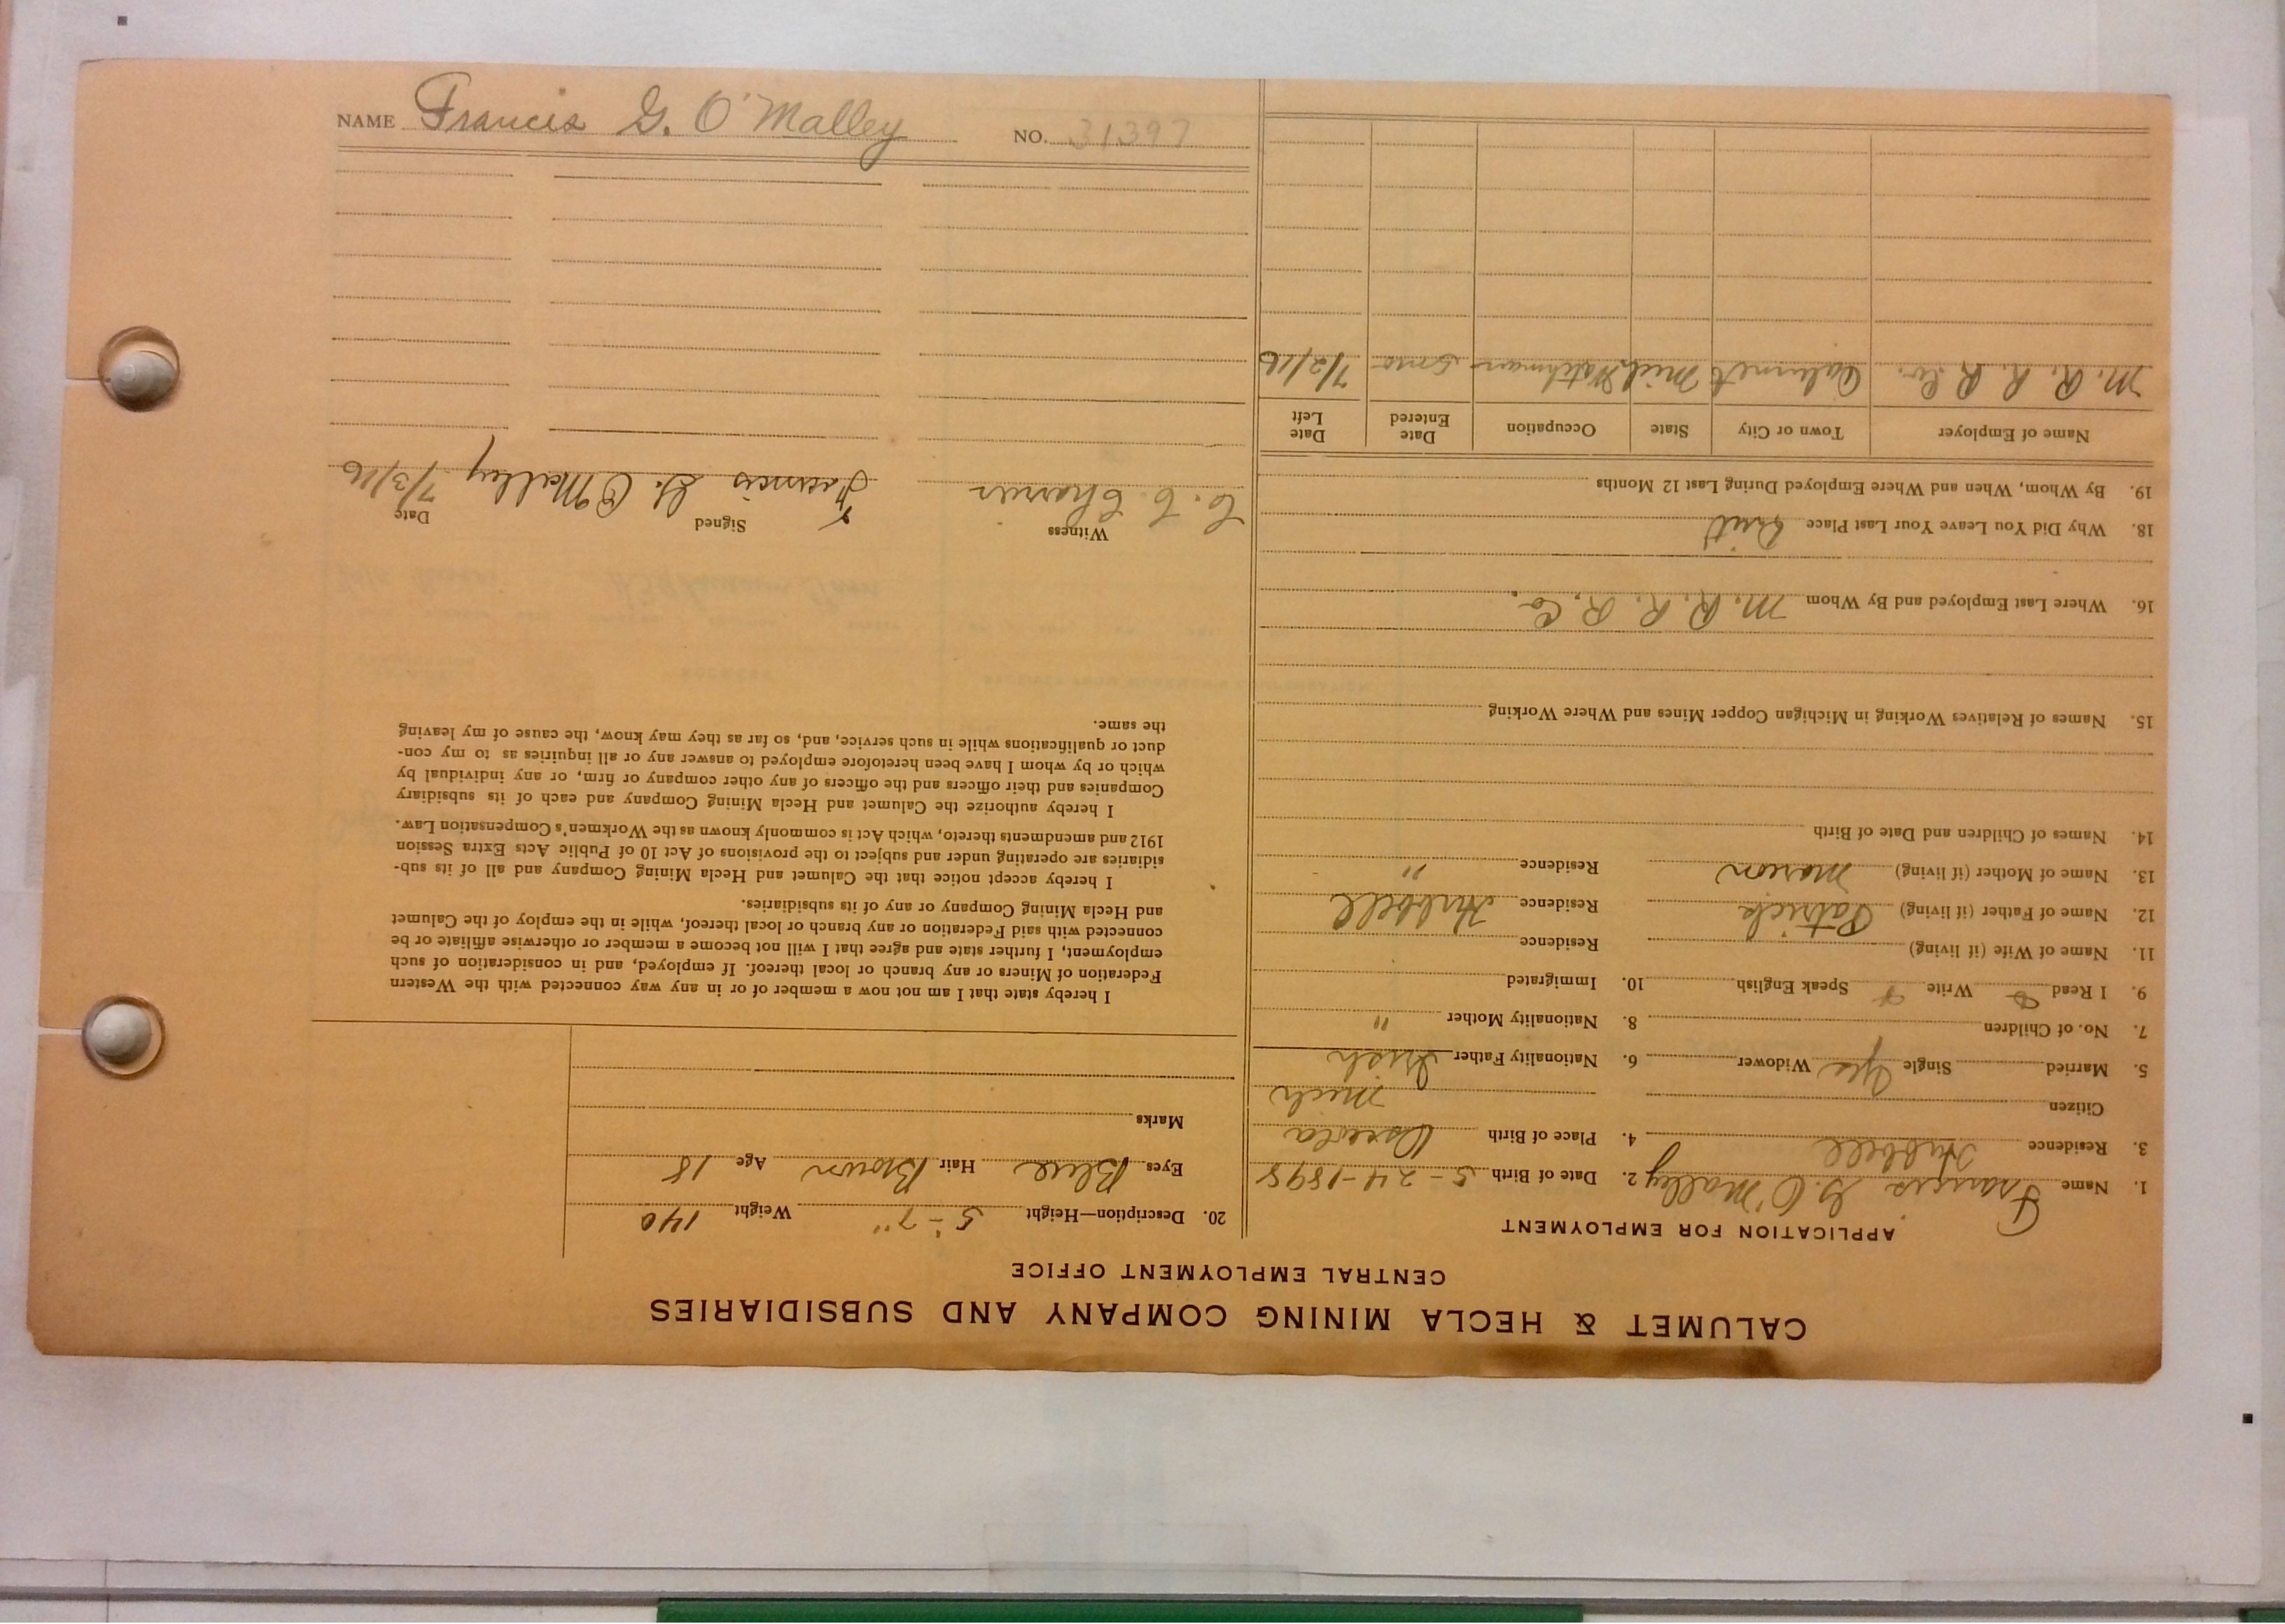 NAME Francis G. O'Malley NO. 31397
CALUMET & HECLA MINING COMPANY AND SUBSIDIARIES
CENTRAL EMPLOYMENT OFFICE
APPLICATION FOR EMPLOYMENT
1. Name Francis G. O'Malley 2. Date of Birth 5-24-1898
3. Residence Hubbell 4. Place of Birth Osceola
Citizen Mich
5. Married Single Yes Widower 6. Nationality Father Irish
7. No. of Children 8. Nationality Mother "
9. I Read Write Speak English 10. Immigrated
11. Name of Wife (if living) Residence
12. Name of Father (if living) Patrick Residence Hubbell
13. Name of Mother (if living) Marion Residence "
14. Names of Children and Date of Birth
15. Names of Relatives Working in Michigan Copper Mines and Where Working
16. Where Last Employed and By Whom M. R. R. R. Co.
18. Why Did You Leave Your Last Place Quit
19. By Whom, When and Where Employed During Last 12 Months
Name of Employer Town or City State Occupation Date Entered Date Left
M. R. R. R. Co. Calumet Mich Watchman 7/2/16
20. Description—Height 5'-7" Weight 140
Eyes Blue Hair Brown Age 18
Marks
I hereby state that I am not now a member of or in any way connected with the Western
Federation of Miners or any branch or local thereof. If employed, and in consideration of such
employment, I further state and agree that I will not become a member or otherwise affiliate or be
connected with said Federation or any branch or local thereof, while in the employ of the Calumet
and Hecla Mining Company or any of its subsidiaries.
I hereby accept notice that the Calumet and Hecla Mining Company and all of its sub-
sidiaries are operating under and subject to the provisions of Act 10 of Public Acts Extra Session
1912 and amendments thereto, which Act is commonly known as the Workmen's Compensation Law.
I hereby authorize the Calumet and Hecla Mining Company and each of its subsidiary
Companies and their officers and the officers of any other company or firm, or any individual by
which or by whom I have been heretofore employed to answer any or all inquiries as to my con-
duct or qualifications while in such service, and, so far as they may know, the cause of my leaving
the same.
Witness Signed Date
Francis G. O'Malley 7/3/16